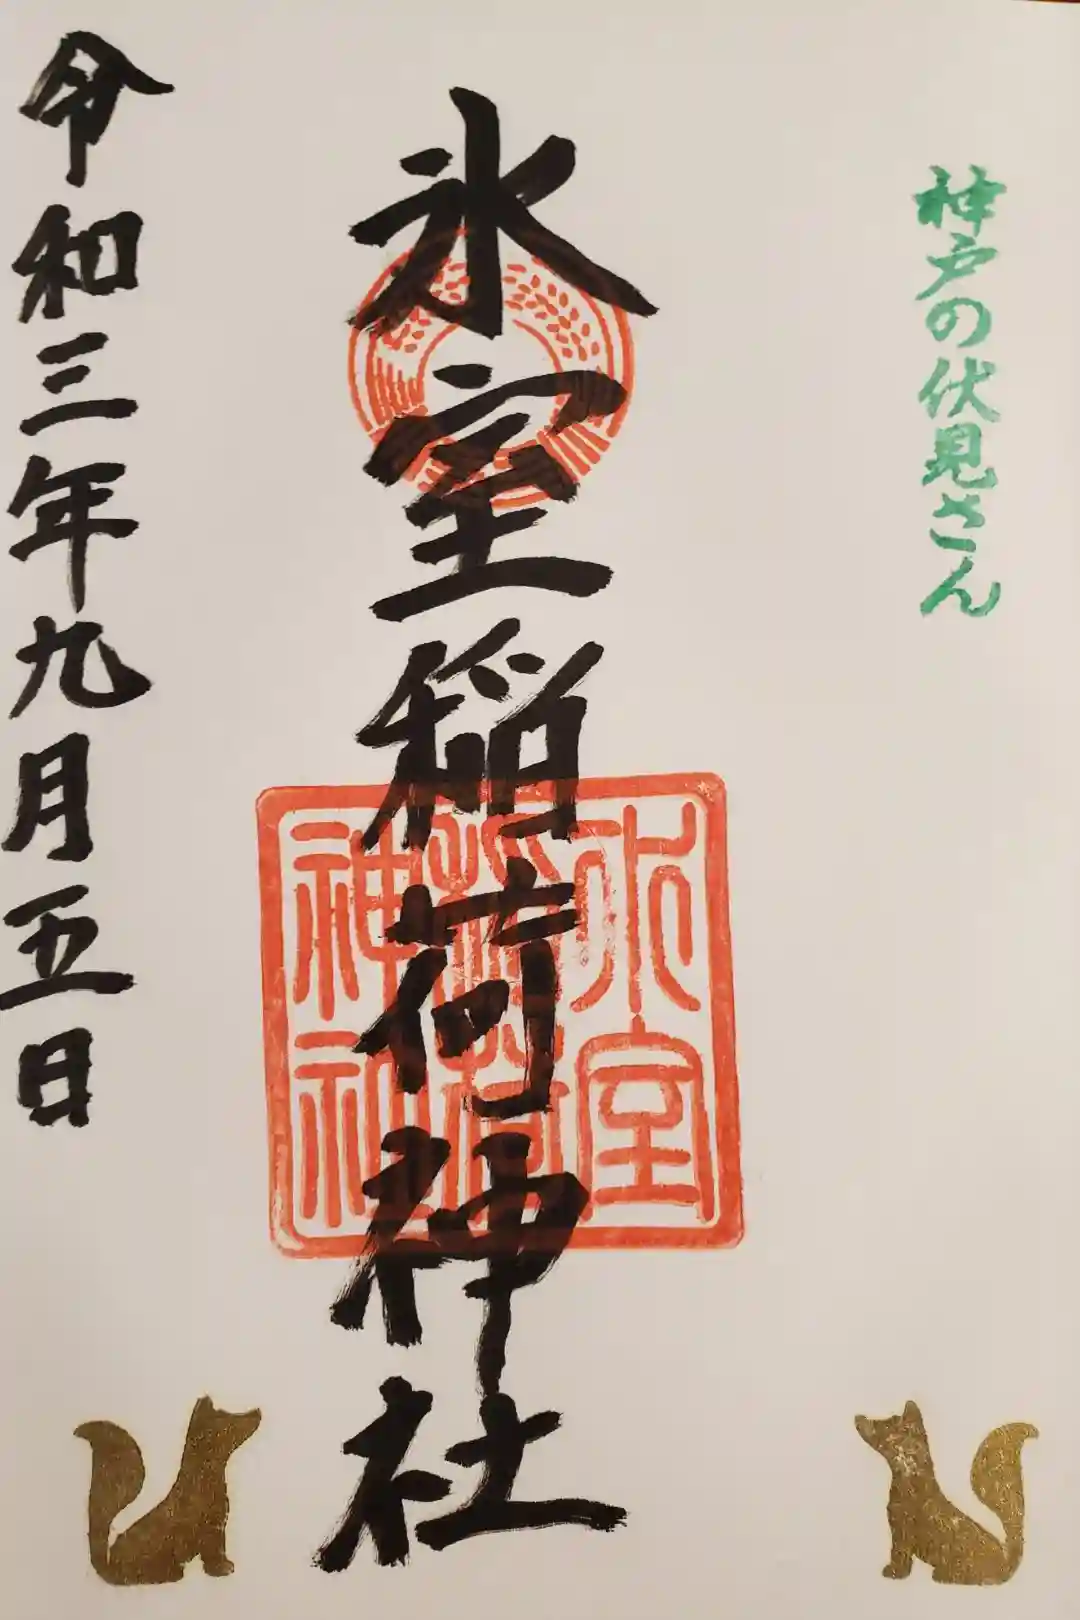 神戸の伏見さん
氷室稲荷神社
氷室
稲荷
神社
令和三年九月五日